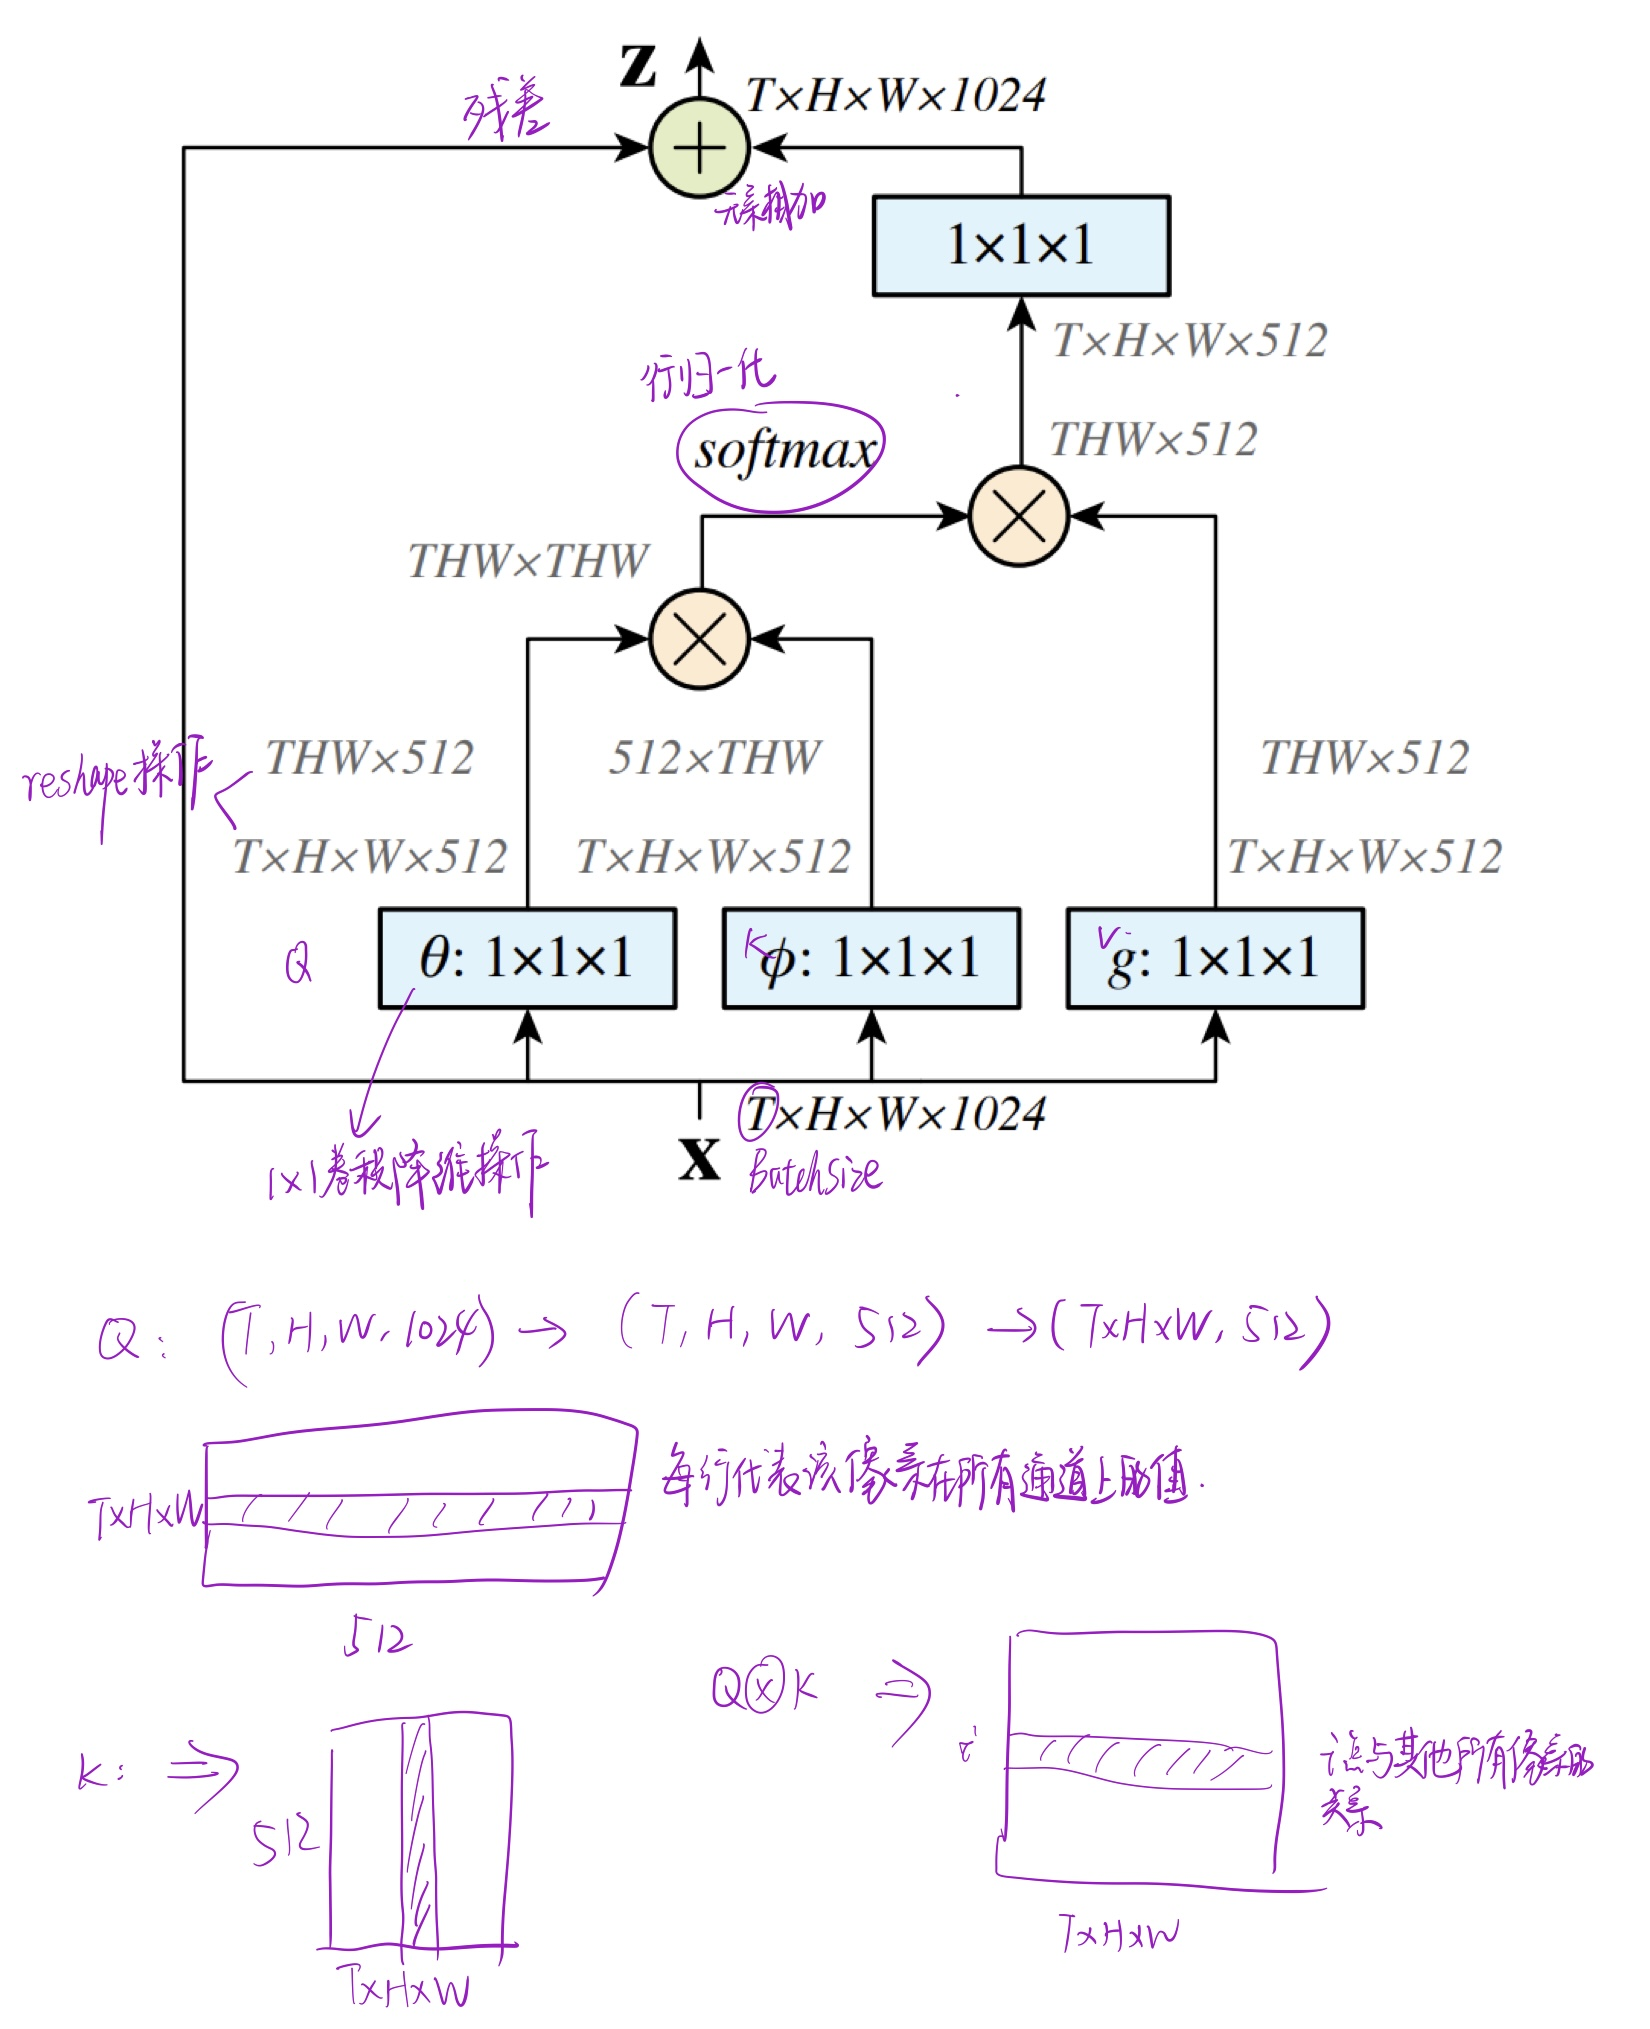 z
T×H×W×1024
残差
元素相加
1×1×1
T×H×W×512
行归一化
softmax
THW×512
THW×THW
reshape操作
THW×512
512×THW
THW×512
T×H×W×512
T×H×W×512
T×H×W×512
Q
θ: 1×1×1
K
ϕ: 1×1×1
V
g: 1×1×1
x
T×H×W×1024
1×1卷积降维操作
Batchsize
Q: (T, H, W, 1024) → (T, H, W, 512) → (T×H×W, 512)
T×H×W
每行代表该像素在所有通道上取值.
512
Q⊗K ⇒
i
该点与其他所有像素的
关系
K: ⇒
512
T×H×W
T×H×W